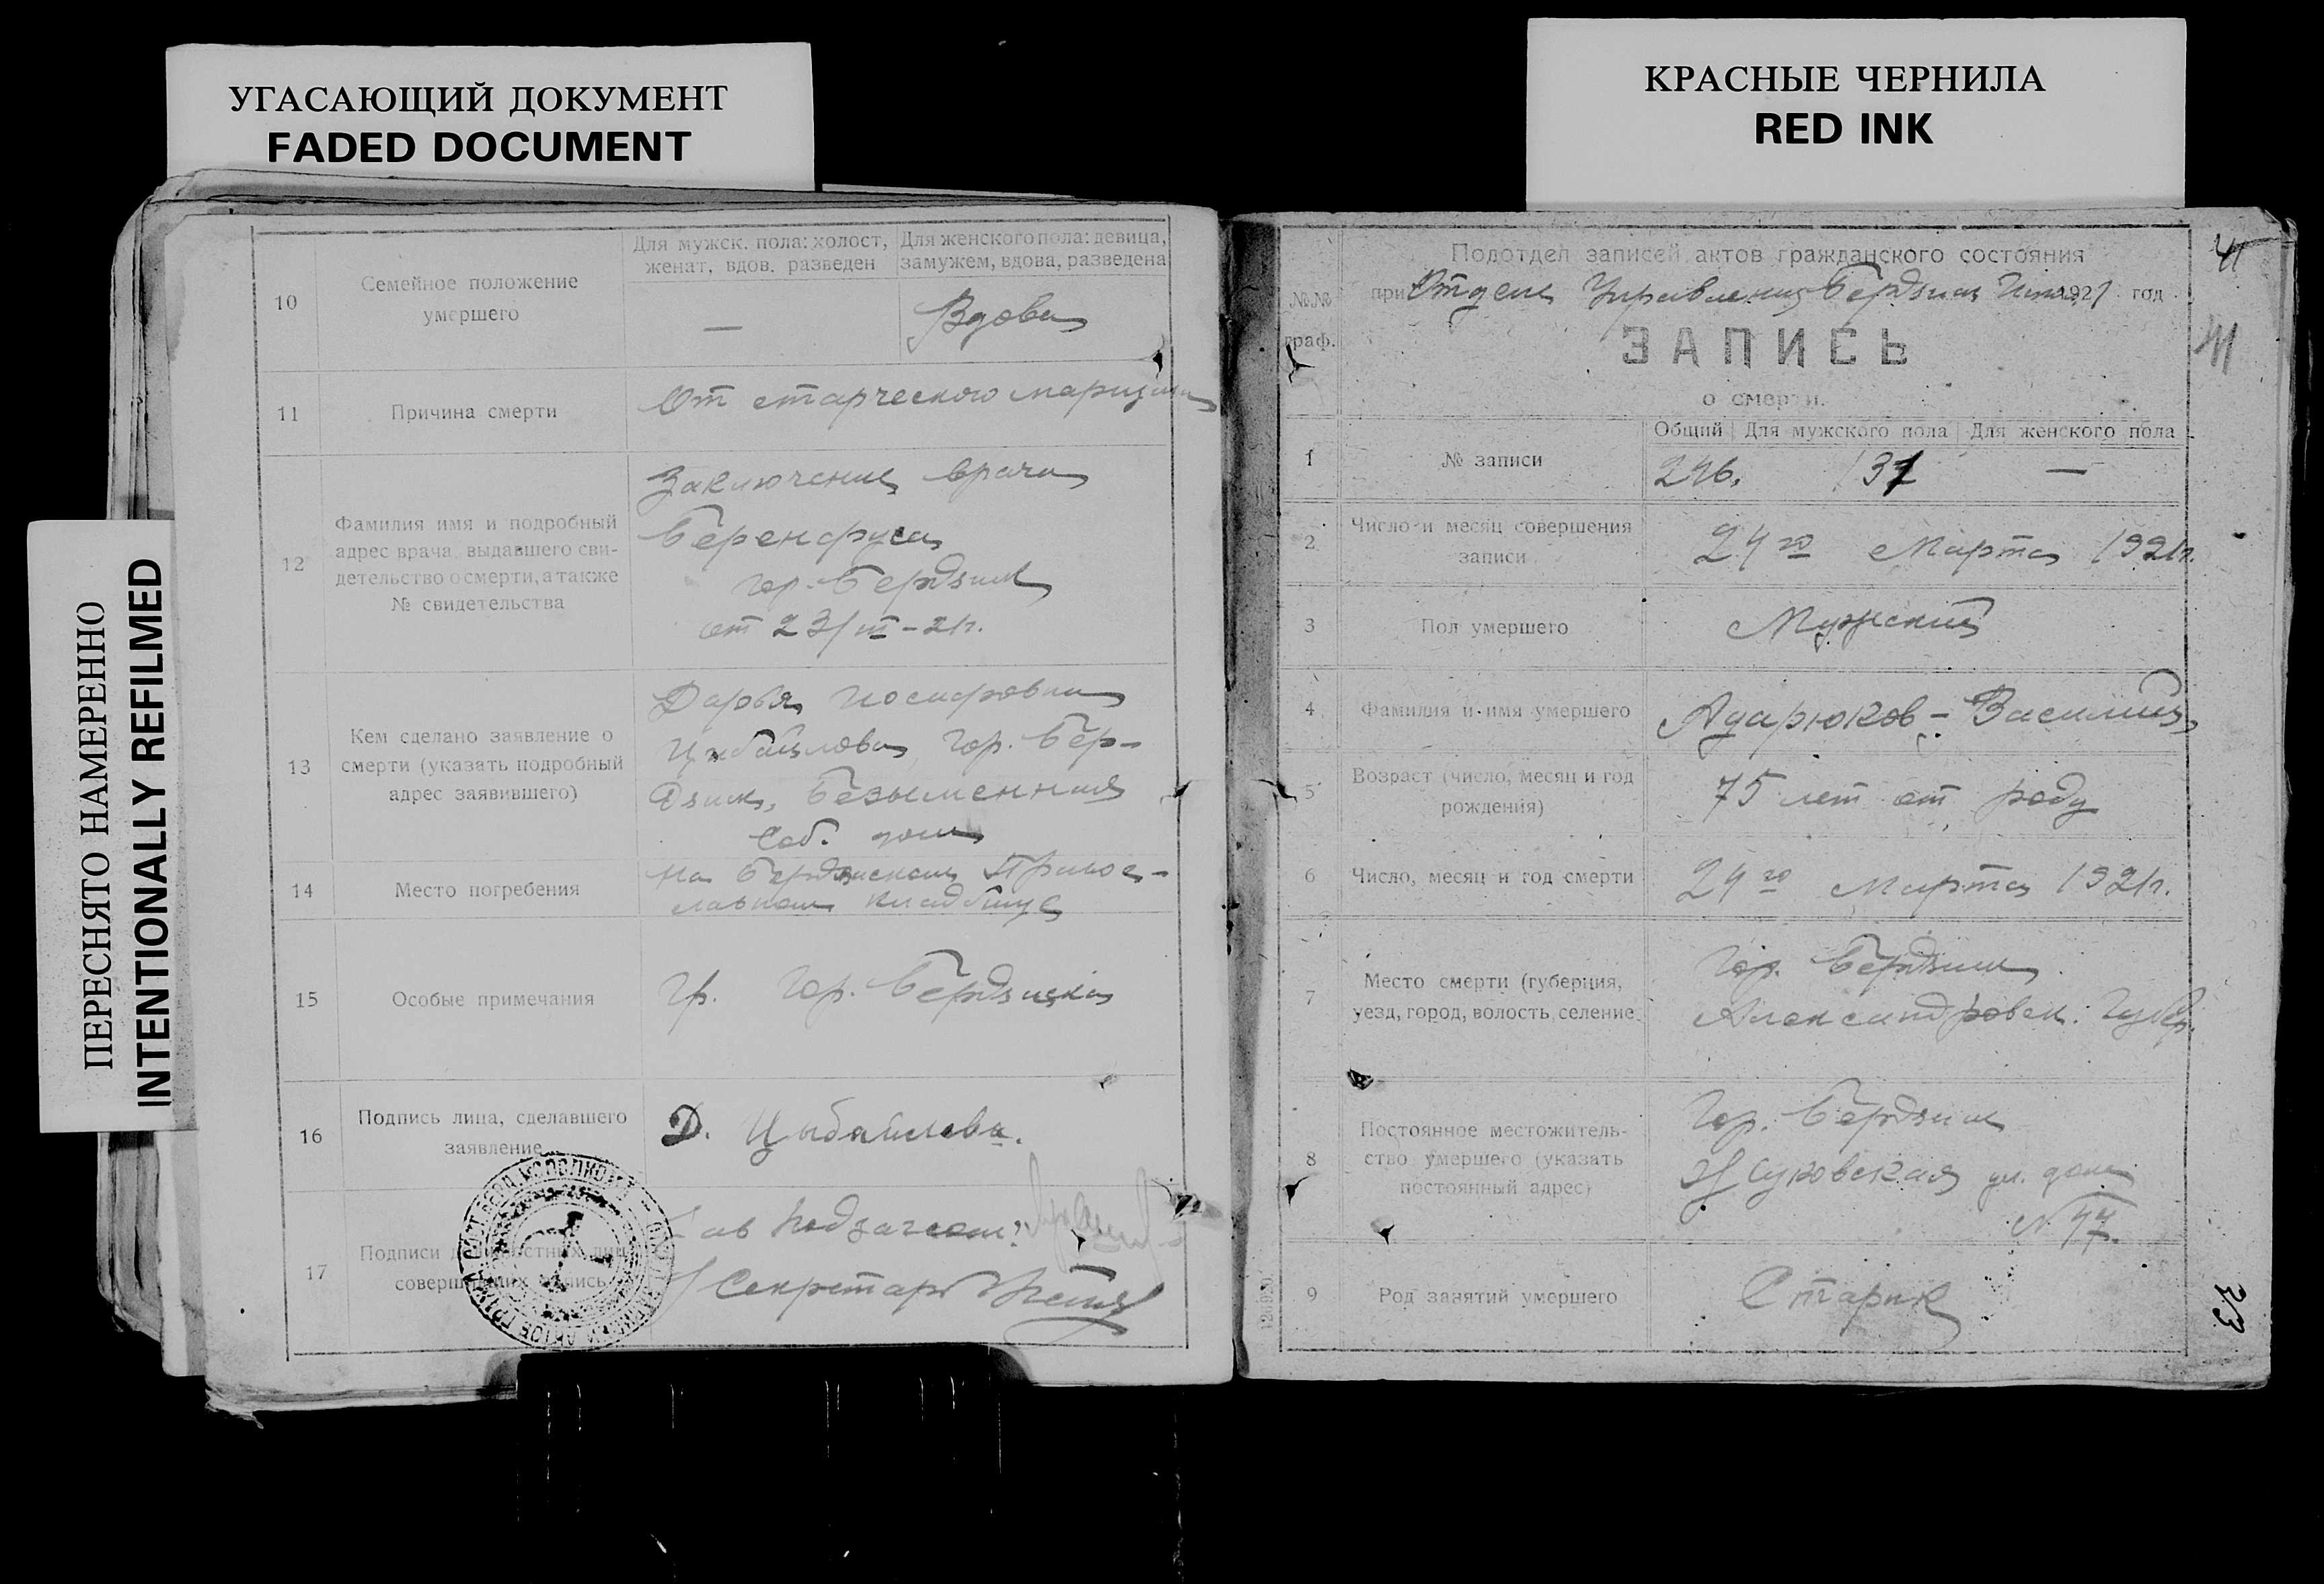 УГАСАЮЩИЙ ДОКУМЕНТ
FADED DOCUMENT
КРАСНЫЕ ЧЕРНИЛА
RED INK
ПЕРЕСНЯТО НАМЕРЕННО
INTENTIONALLY REFILMED
10
Семейное положение
умершего
Для мужск. пола: холост,
женат, вдов, разведен
Для женского пола: девица,
замужем, вдова, разведена
—
Вдова
11
Причина смерти
От старческого
12
Фамилия имя и подробный
адрес врача, выдавшего сви-
детельство о смерти, а также
№ свидетельства
Заключение врача
Беренфуса
гор. Бердянск
от 23/III-21г.
13
Кем сделано заявление о
смерти (указать подробный
адрес заявившего)
Дарья Иосифовна
Цыбайлова, Гор. Бер-
дянск, Безыменная
Соб. дом
14
Место погребения
На Бердянском Правос-
лавном кладбище
15
Особые примечания
Гр. Гор. Бердянска
16
Подпись лица, сделавшего
заявление
Д. Цыбайлова.
17
Подписи
Секретарь
№№
граф.
Подотдел записей актов гражданского состояния
при Отделе Управления Бердянск 1921 год
ЗАПИСЬ
о смерти.
41
41
1
№ записи
Общий
Для мужского пола
Для женского пола
246.
131
—
2
Число и месяц совершения
записи
24го Марта 1921г.
3
Пол умершего
Мужский
4
Фамилия и имя умершего
Адарюков - Василий
5
Возраст (число, месяц и год
рождения)
75 лет от роду
6
Число, месяц и год смерти
24го Марта 1921г.
7
Место смерти (губерния,
уезд, город, волость, селение
Гор. Бердянск
Александровск. Губер.
8
Постоянное местожитель-
ство умершего (указать
постоянный адрес)
Гор. Бердянск
Жуковская ул. дом
№ 47.
9
Род занятий умершего
Старик